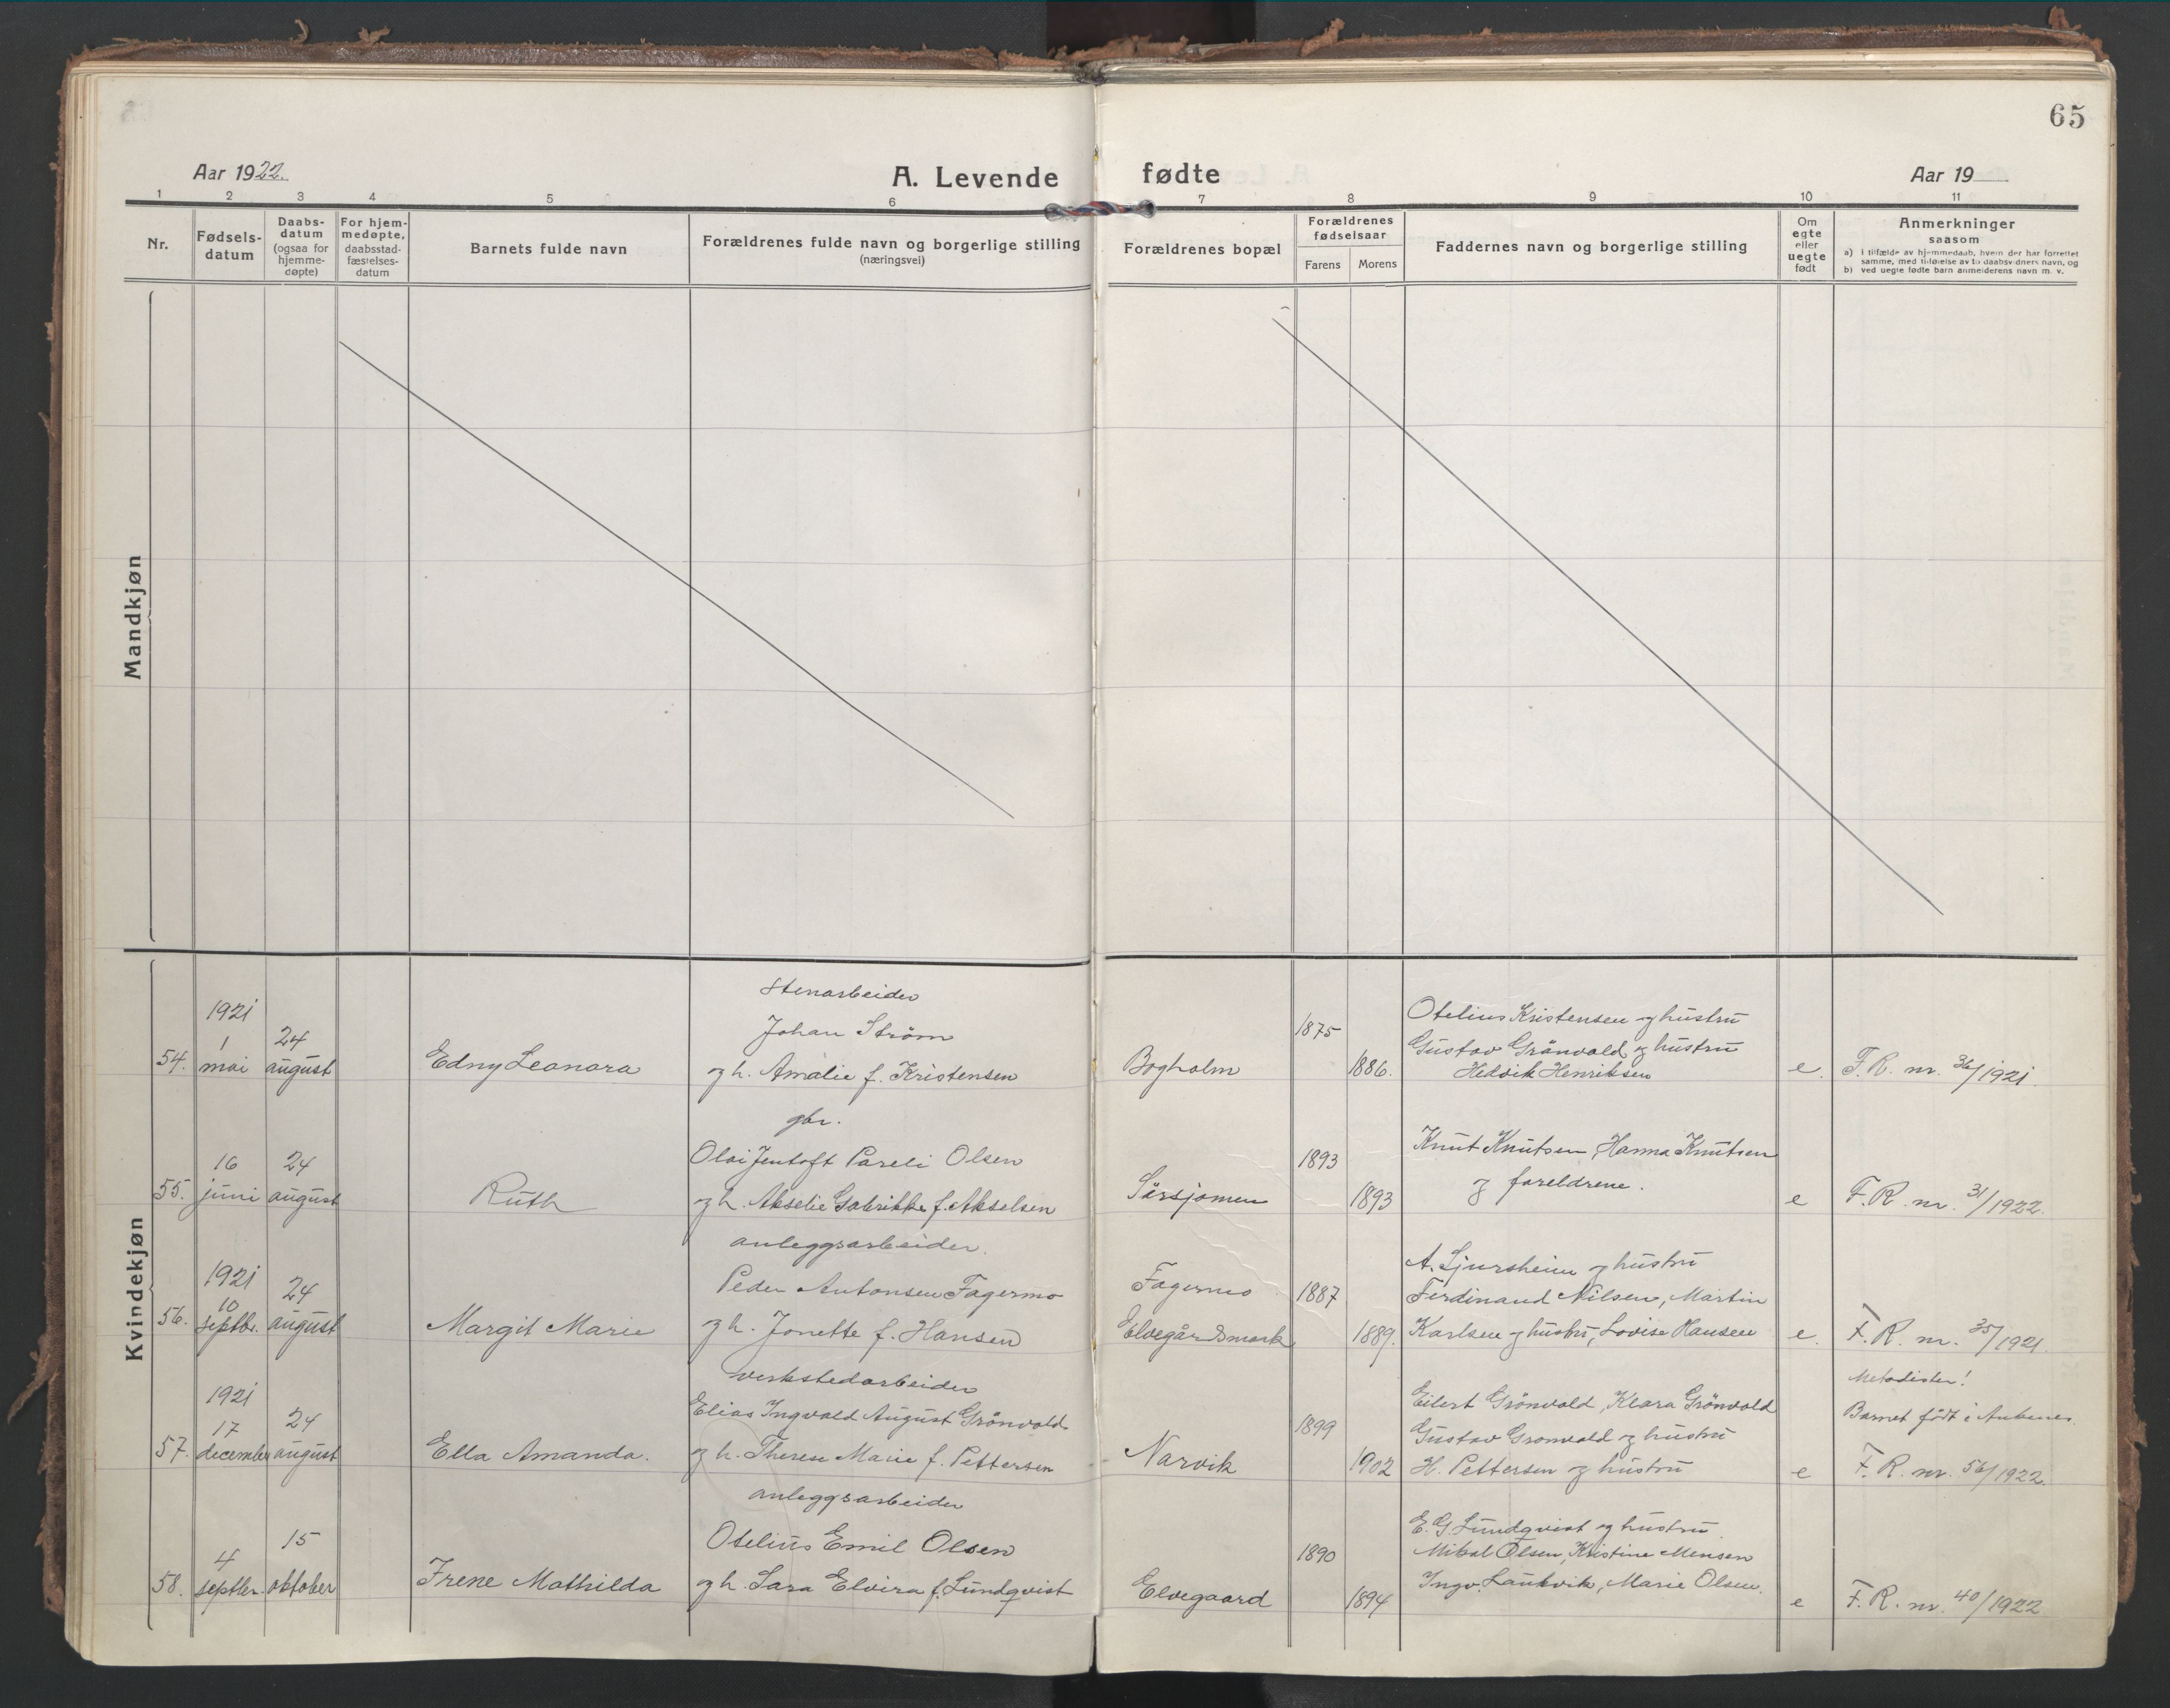 65
Aar 1922.
A. Levende
fødte
Aar 19
1 2 3 4 5 6 7 8 9 10 11
Nr.
Fødsels-
datum
Daabs-
datum
(ogsaa for
hjemme-
døpte)
For hjem-
medøpte,
daabsstad-
fæstelses-
datum
Barnets fulde navn
Forældrenes fulde navn og borgerlige stilling
(næringsvei)
Forældrenes bopæl
Forældrenes
fødselsaar
Farens Morens
Faddernes navn og borgerlige stilling
Om
egte
eller
uegte
født
Anmerkninger
saasom
a) i tilfælde av hjemmedaab, hvem der har forrettet
samme, med tilføielse av to daabsvidners navn, og
b) ved uegte fødte barn anmelderens navn m. v.
Mandkjøn
Kvindekjøn
54.
1921
1
mai
24
august
Edny Leonora
Stenarbeider
Johan Ström
og h. Amalie f. Kristensen
Bogholm
1875
1886.
Otelius Kristensen og hustru
Gustav Grönvold og hustru
Hedvik Henriksen
e.
F. R. nr. 36/1921.
55.
16
juni
24
august
Ruth
gbr.
Olai Jentoft Pareli Olsen
og h. Akselie Gabrikke f. Akselsen
Sørsjomen
1893
1893
Knut Knutsen, Hanna Knutsen
og foreldrene.
e
F. R. nr. 31/1922.
56.
1921
10
septbr.
24
august
Margit Marie
anleggsarbeider.
Peder Antonsen Fagermo
og h. Jonette f. Hansen
Fagernes
Elvegårdsmark
1887
1889.
A. Ljursheim og hustru
Ferdinand Nilsen, Martin
Karlsen og hustru, Lovise Hansen
e.
F. R. nr. 35/1921.
57.
1921
17
december
24
august
Ella Amanda.
verkstedarbeider
Elias Ingvald August Grönvold
og h. Therese Marie f. Pettersen
Narvik
1899
1902
Eilert Grönvold, Klara Grönvold
Gustav Gronvold og hustru
H. Pettersen og hustru
e
Metodister!
Barnet födt i Ankenes.
F. R. nr. 56/1922.
58.
4
septbr.
15
oktober
Irene Mathilda
anleggsarbeider
Otelius Emil Olsen
og h. Sara Elvira f. Lundqvist
Elvegaard
1890
1894
E. G. Lundqvist og hustru
Mikal Olsen, Kristine Mensen
Ingv. Laukvik, Marie Olsen.
e
F. R. nr. 40/1922